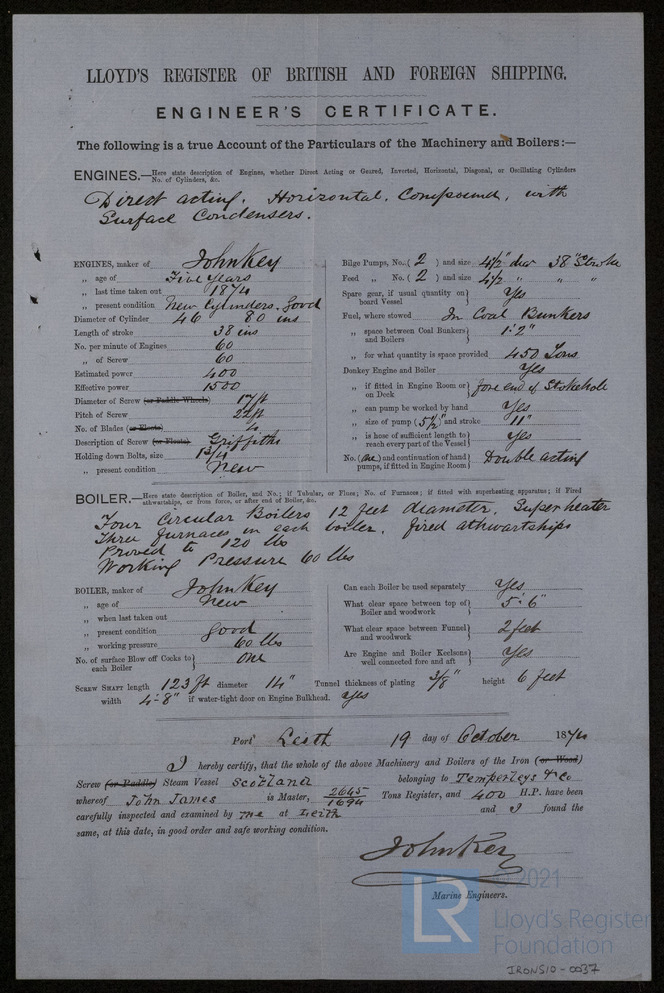 LLOYD'S REGISTER OF BRITISH AND FOREIGN SHIPPING.
ENGINEER'S CERTIFICATE.
The following is a true Account of the Particulars of the Machinery and Boilers:—
ENGINES.—Here state description of Engines, whether Direct Acting or Geared, Inverted, Horizontal, Diagonal, or Oscillating Cylinders
No. of Cylinders, &c.
Direct acting. Horizontal. Compound, with
Surface Condensers.
ENGINES, maker of John Key
„ age of Five Years
„ last time taken out 1874
„ present condition New Cylinders. Good
Diameter of Cylinder 46 80 ins
Length of stroke 38 ins
No. per minute of Engines 60
„ of Screw 60
Estimated power 400
Effective power 1500
Diameter of Screw (or Paddle Wheels) 17 ft
Pitch of Screw 22 ft
No. of Blades (or Floats) 4
Description of Screw (or Floats) Griffiths
Holding down Bolts, size 1 3/4
„ present condition New
Bilge Pumps, No. ( 2 ) and size 4 1/2" dia 38" Stroke
Feed „ No. ( 2 ) and size 4 1/2 " "
Spare gear, if usual quantity on board Vessel Yes
Fuel, where stowed In Coal Bunkers
„ space between Coal Bunkers and Boilers 1'.2"
„ for what quantity is space provided 450 Tons
Donkey Engine and Boiler Yes
„ if fitted in Engine Room or on Deck fore end of Stokehole
„ can pump be worked by hand Yes
„ size of pump (5 1/2") and stroke 11"
„ is hose of sufficient length to reach every part of the Vessel Yes
No. (One) and continuation of hand pumps, if fitted in Engine Room Double acting
BOILER.—Here state description of Boiler, and No.; if Tubular, or Flues; No. of Furnaces; if fitted with superheating apparatus; if Fired
athwartships, or from force, or after end of Boiler, &c.
Four Circular Boilers 12 feet diameter. Superheater
Three furnaces in each boiler. fired athwartships
Proved to 120 lbs
Working Pressure 60 lbs
BOILER, maker of John Key
„ age of New
„ when last taken out
„ present condition Good
„ working pressure 60 lbs
No. of surface Blow off Cocks to each Boiler One
Can each Boiler be used separately Yes
What clear space between top of Boiler and woodwork 5'.6"
What clear space between Funnel and woodwork 2 feet
Are Engine and Boiler Keelsons well connected fore and aft Yes
SCREW SHAFT length 123 ft diameter 14" Tunnel thickness of plating 3/8" height 6 feet
width 4'-8" if water-tight door on Engine Bulkhead. Yes
Port Leith 19 day of October 1874
I hereby certify, that the whole of the above Machinery and Boilers of the Iron (or Wood)
Screw (or Paddle) Steam Vessel Scotland belonging to Temperleys & Co
whereof John James is Master, 2645/1694 Tons Register, and 400 H.P. have been
carefully inspected and examined by me at Leith and I found the
same, at this date, in good order and safe working condition.
John Key
Marine Engineers.
LR
© 2021
Lloyd's Register
Foundation
IRON510-0037